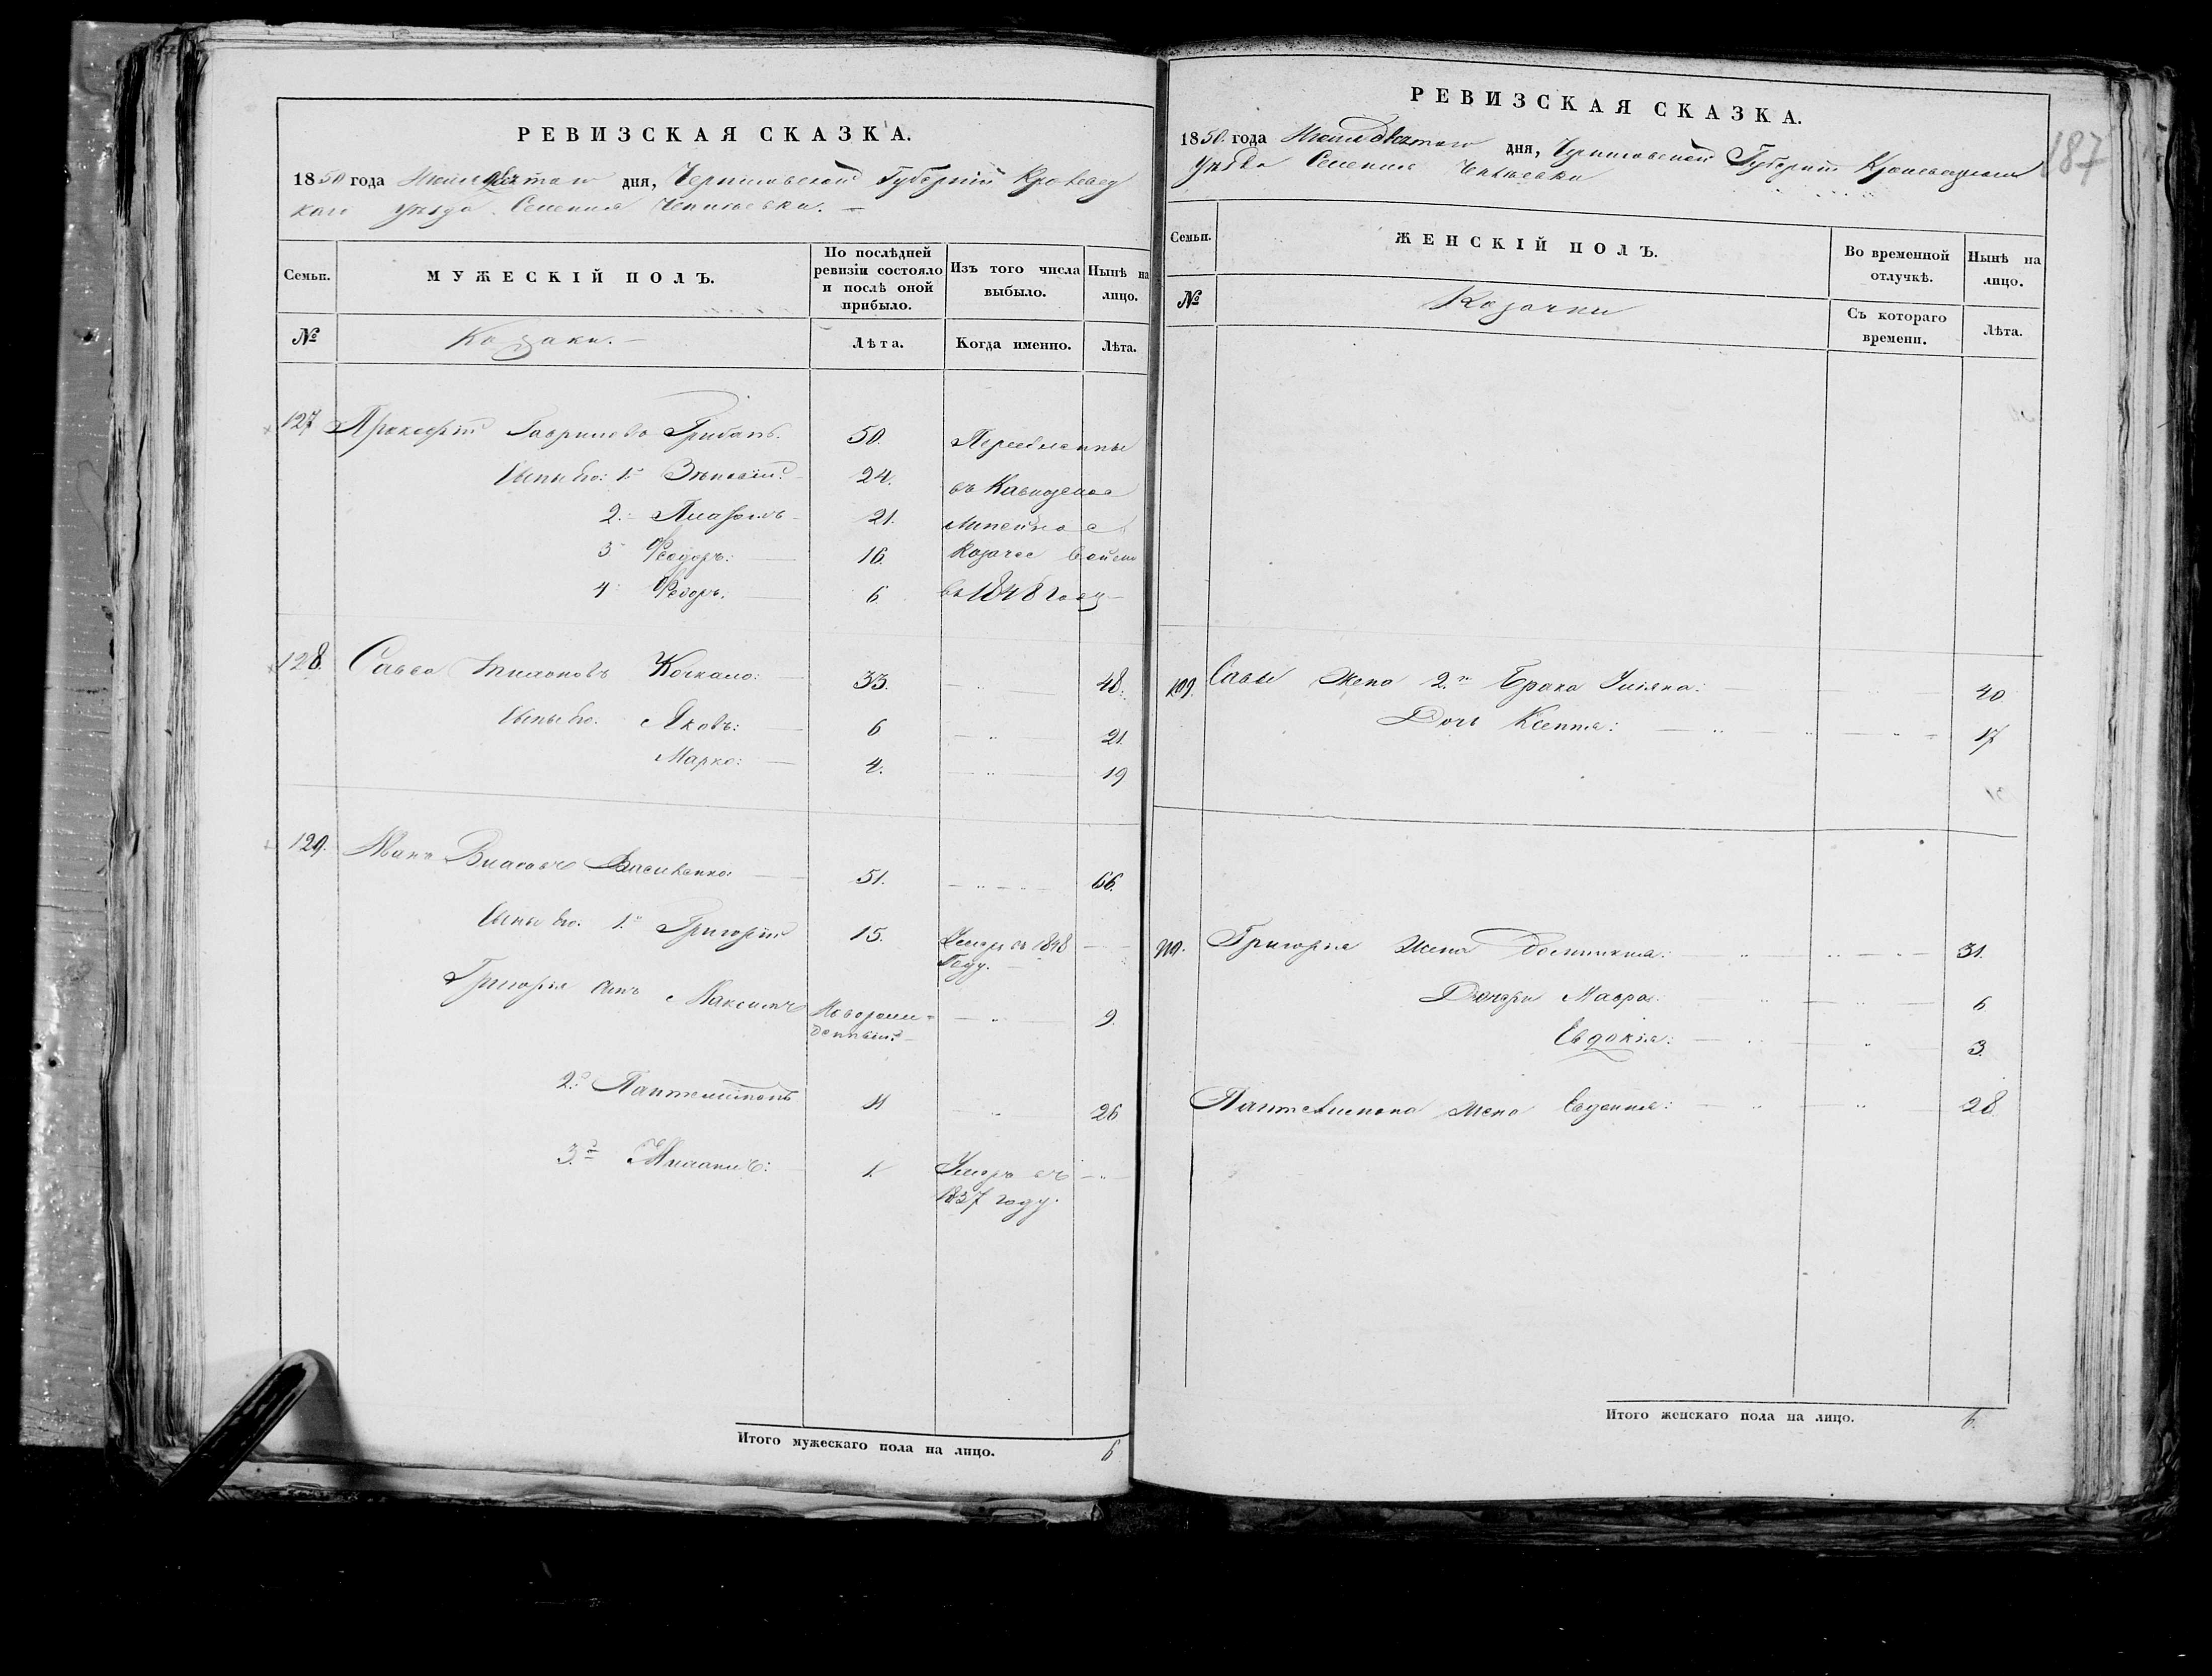 РЕВИЗСКАЯ СКАЗКА.
1850 года дня, Черниговской Губерніи Кролевец
каго уѣзда Селения Чепліевки.
Семьи.
МУЖЕСКІЙ ПОЛЪ.
По послѣдней ревизіи состояло и послѣ оной прибыло.
Изъ того числа выбыло.
Нынѣ на лицо.
№
Козаки.
Лѣта.
Когда именно.
Лѣта.
127 Прокофій Гавриловъ Грибанъ. 50. Переселенны
Сыны его: 1. 24. въ Кавказское
2. 21. Линейное
3 Федоръ: 16. Козачое Войско
4 Федоръ. 6 въ 1848 году
128. Савва Коскало: 33. 48.
Сыны его. Яковъ: 6 21.
Марко: 4. 19
129. Иванъ Власовъ Василенко: 51. 66.
Сыны его. 1. Григорій 15. Умеръ въ 1848
Году.
Григорія сынъ Максимъ Новорож-
денный 9.
2. Пантелиімонъ 11 26
3. 1. Умеръ въ
1837 году.
Итого мужескаго пола на лицо. 6
РЕВИЗСКАЯ СКАЗКА.
187
1850. года дня, Черниговской Губерніи Кролевецкаго
Уѣзда Селения Чепліевки
Семьи.
ЖЕНСКІЙ ПОЛЪ.
Во временной отлучкѣ.
Нынѣ на лицо.
№
Козачки
Съ котораго времени.
Лѣта.
109. Савы жена 2. Брака Уліяна: 40
Дочь Ксенія: 17
110. Григорія жена Домникія: 31.
Дочери Мавра: 6
Евдокія: 3.
Пантелимона жена Евгенія: 28
Итого женскаго пола на лицо. 6.